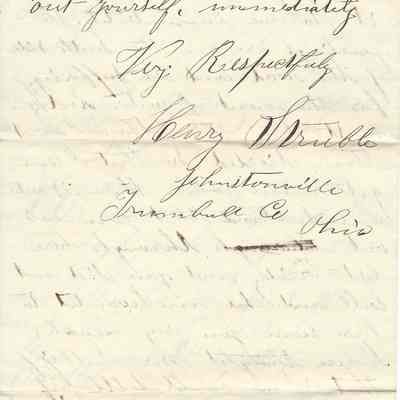 out yourself, immediately
Very Respectfuly
Henry Struble
Johnstonville
Trumbull Co
Ohio